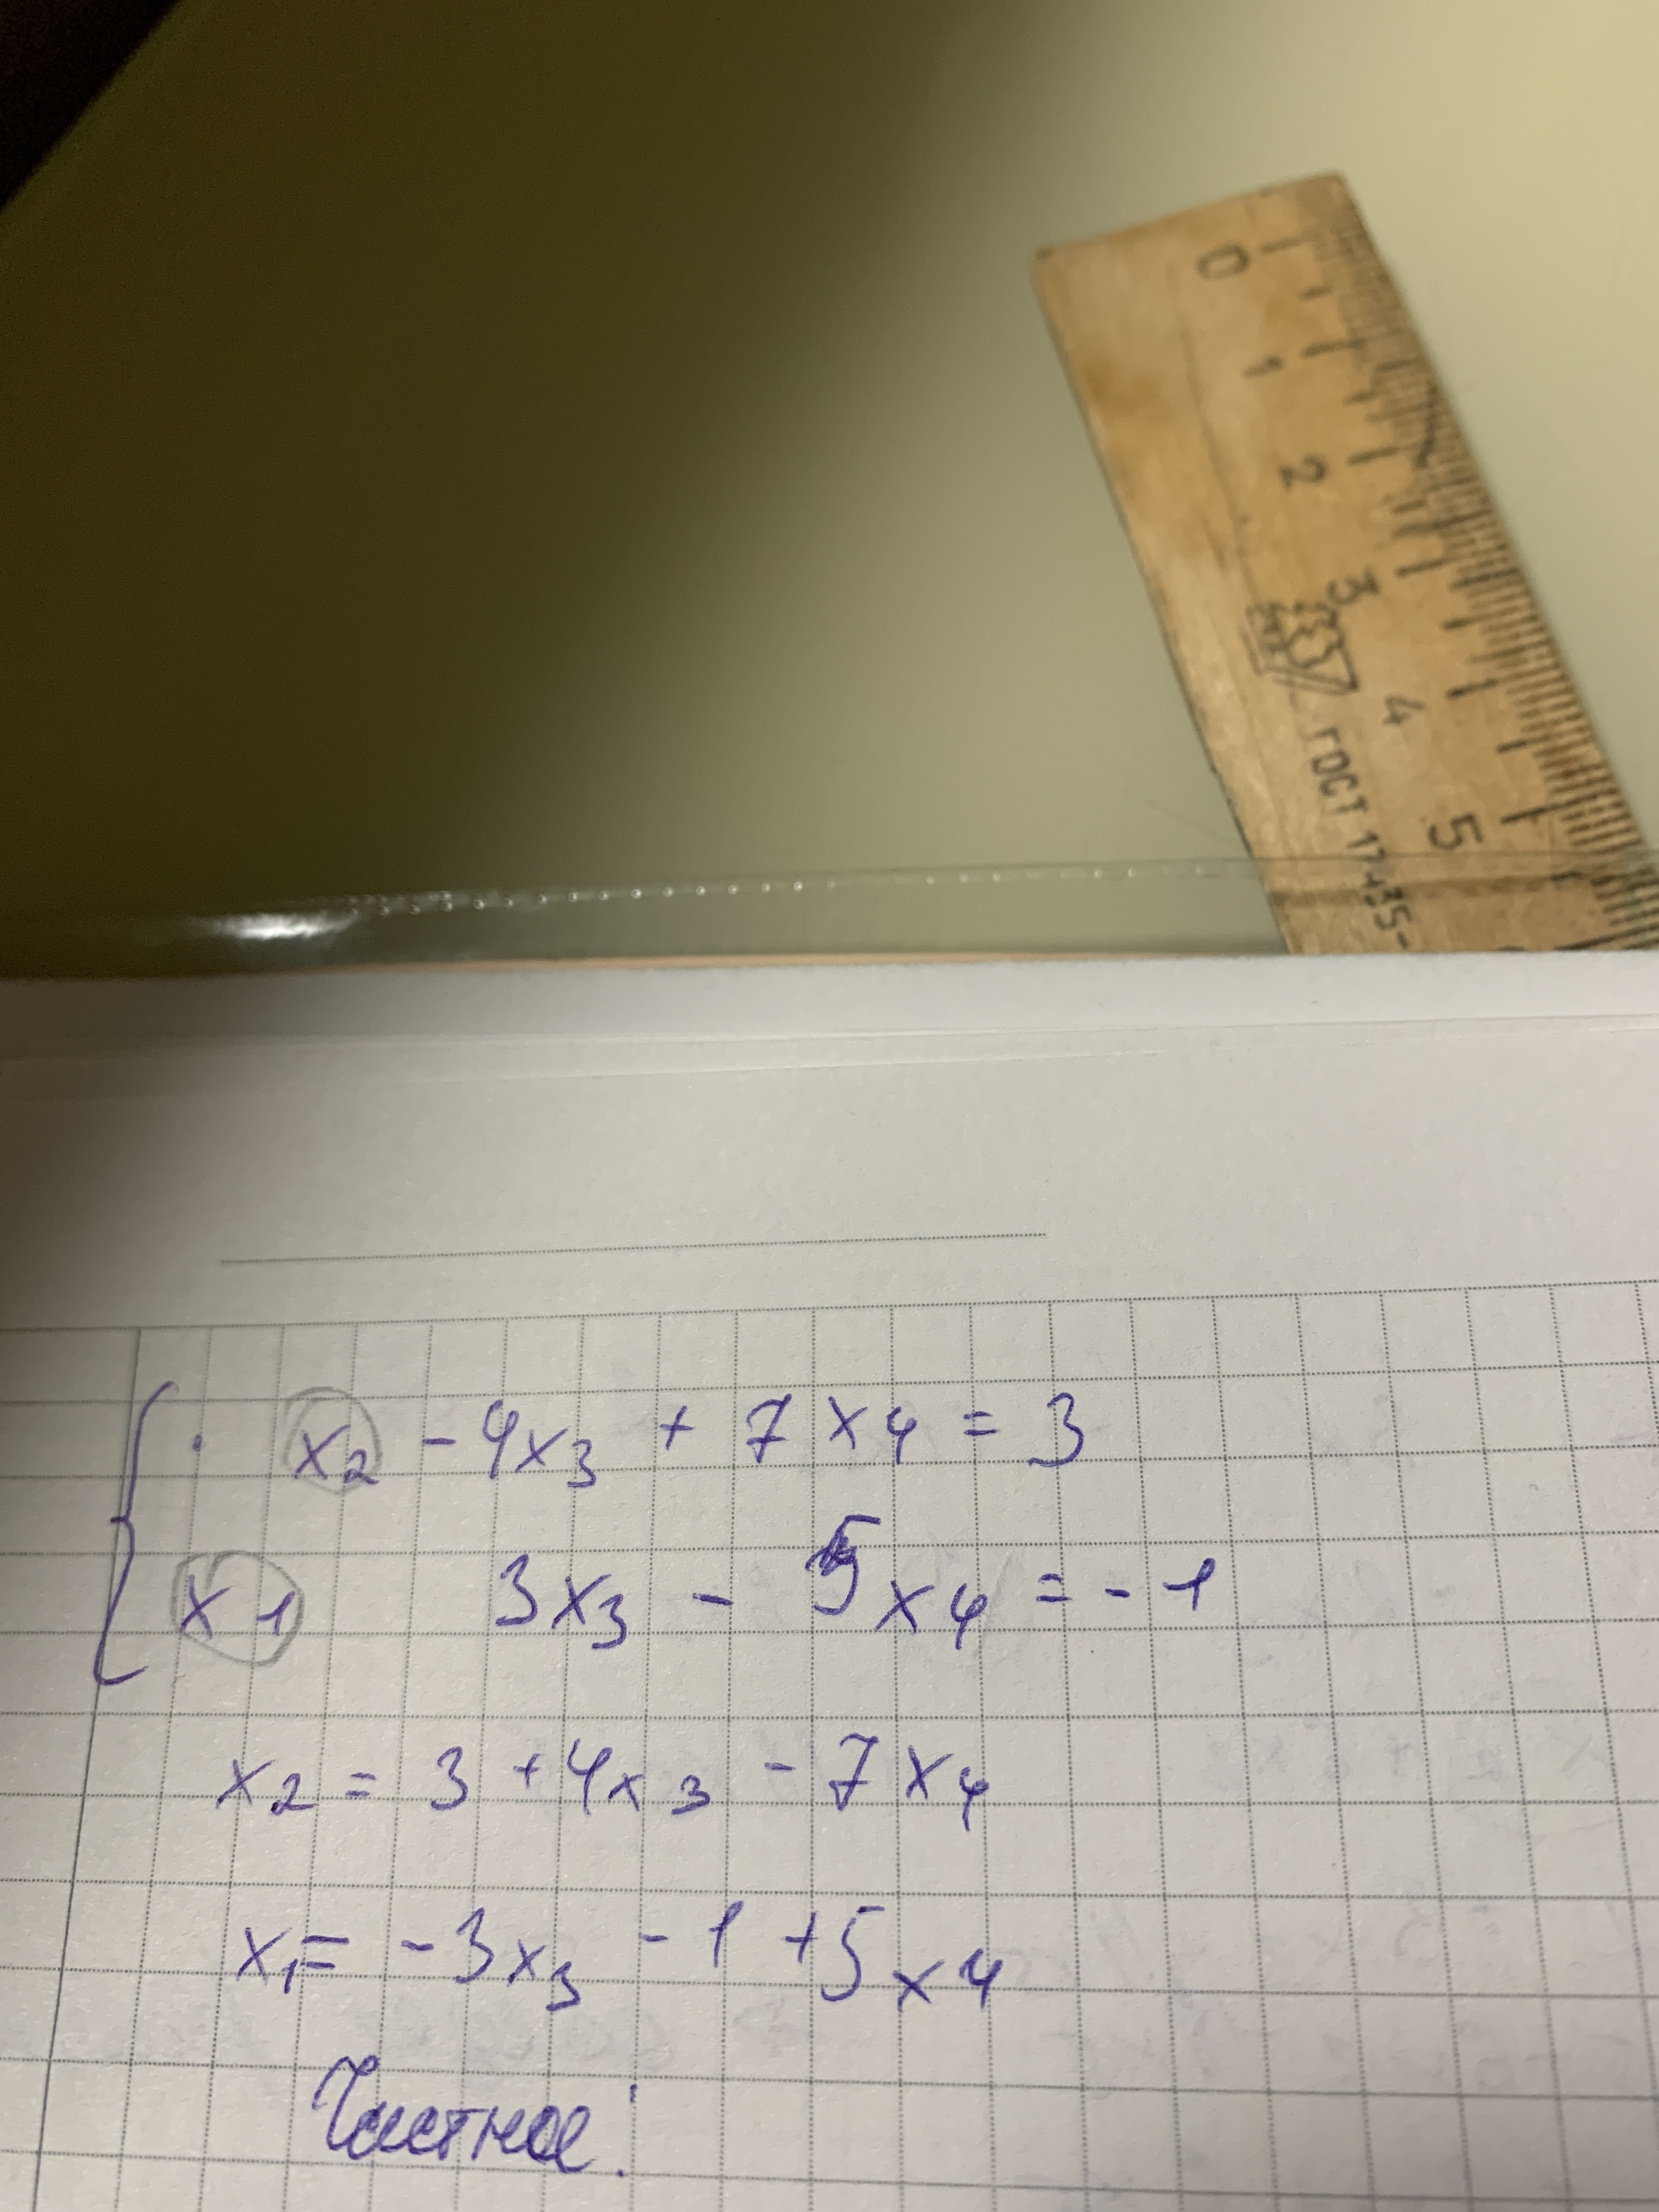 0
1
2
3
4
ГОСТ 17435-
5
x2 - 4x3 + 7x4 = 3
x1 3x3 - 5x4 = -1
x2 = 3 + 4x3 - 7x4
x1 = -3x3 - 1 + 5x4
Частное: